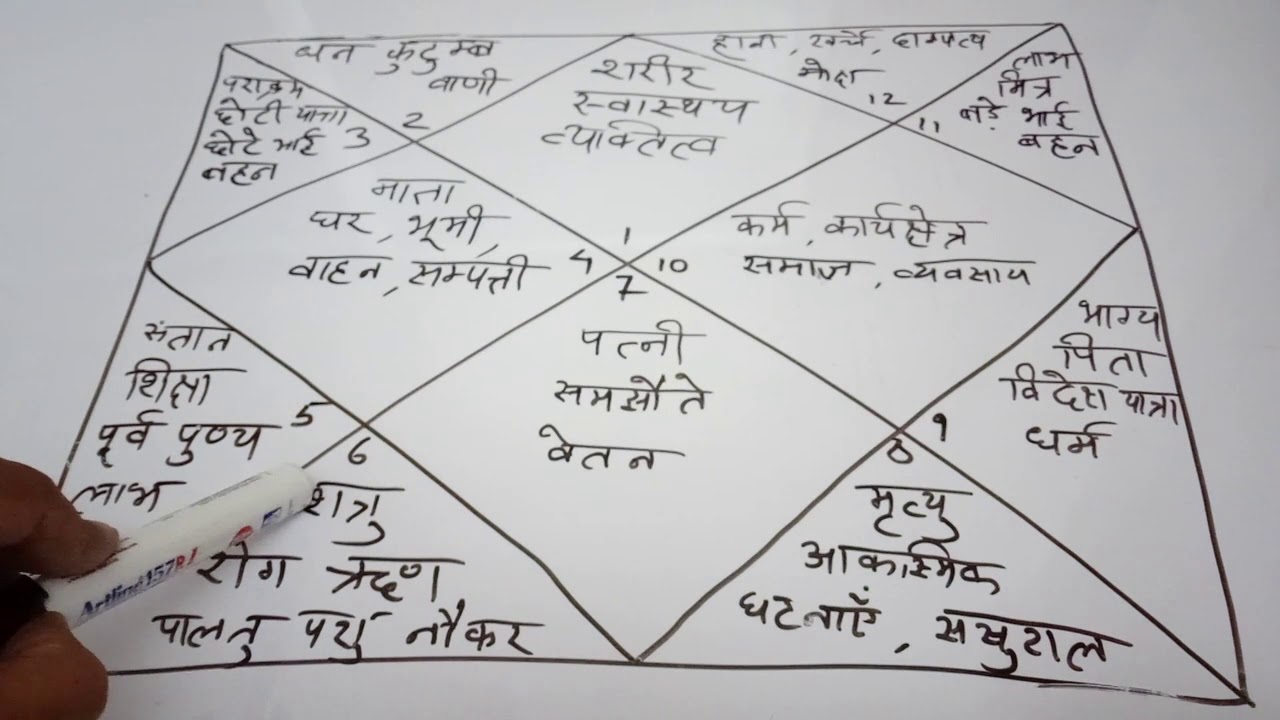 धन कुटुम्ब
वाणी
2
शरीर
स्वास्थय
व्यक्तित्व
1
हानी, खर्चे, दाम्पत्य
मोक्ष
12
लाभ
मित्र
बड़े भाई
बहन
11
पराक्रम
छोटी यात्रा
छोटे भाई
बहन
3
माता
घर, भूमी,
वाहन, सम्पत्ती
4
कर्म, कार्यक्षेत्र
समाज, व्यवसाय
10
7
पत्नी
समझौते
वेतन
संतान
शिक्षा
पूर्व पुण्य
लाभ
5
6
शत्रु
रोग ऋण
पालतु पशु नौकर
भाग्य
पिता
विदेश यात्रा
धर्म
9
8
मृत्यु
आकस्मिक
घटनाएँ, ससुराल
Artline 157R